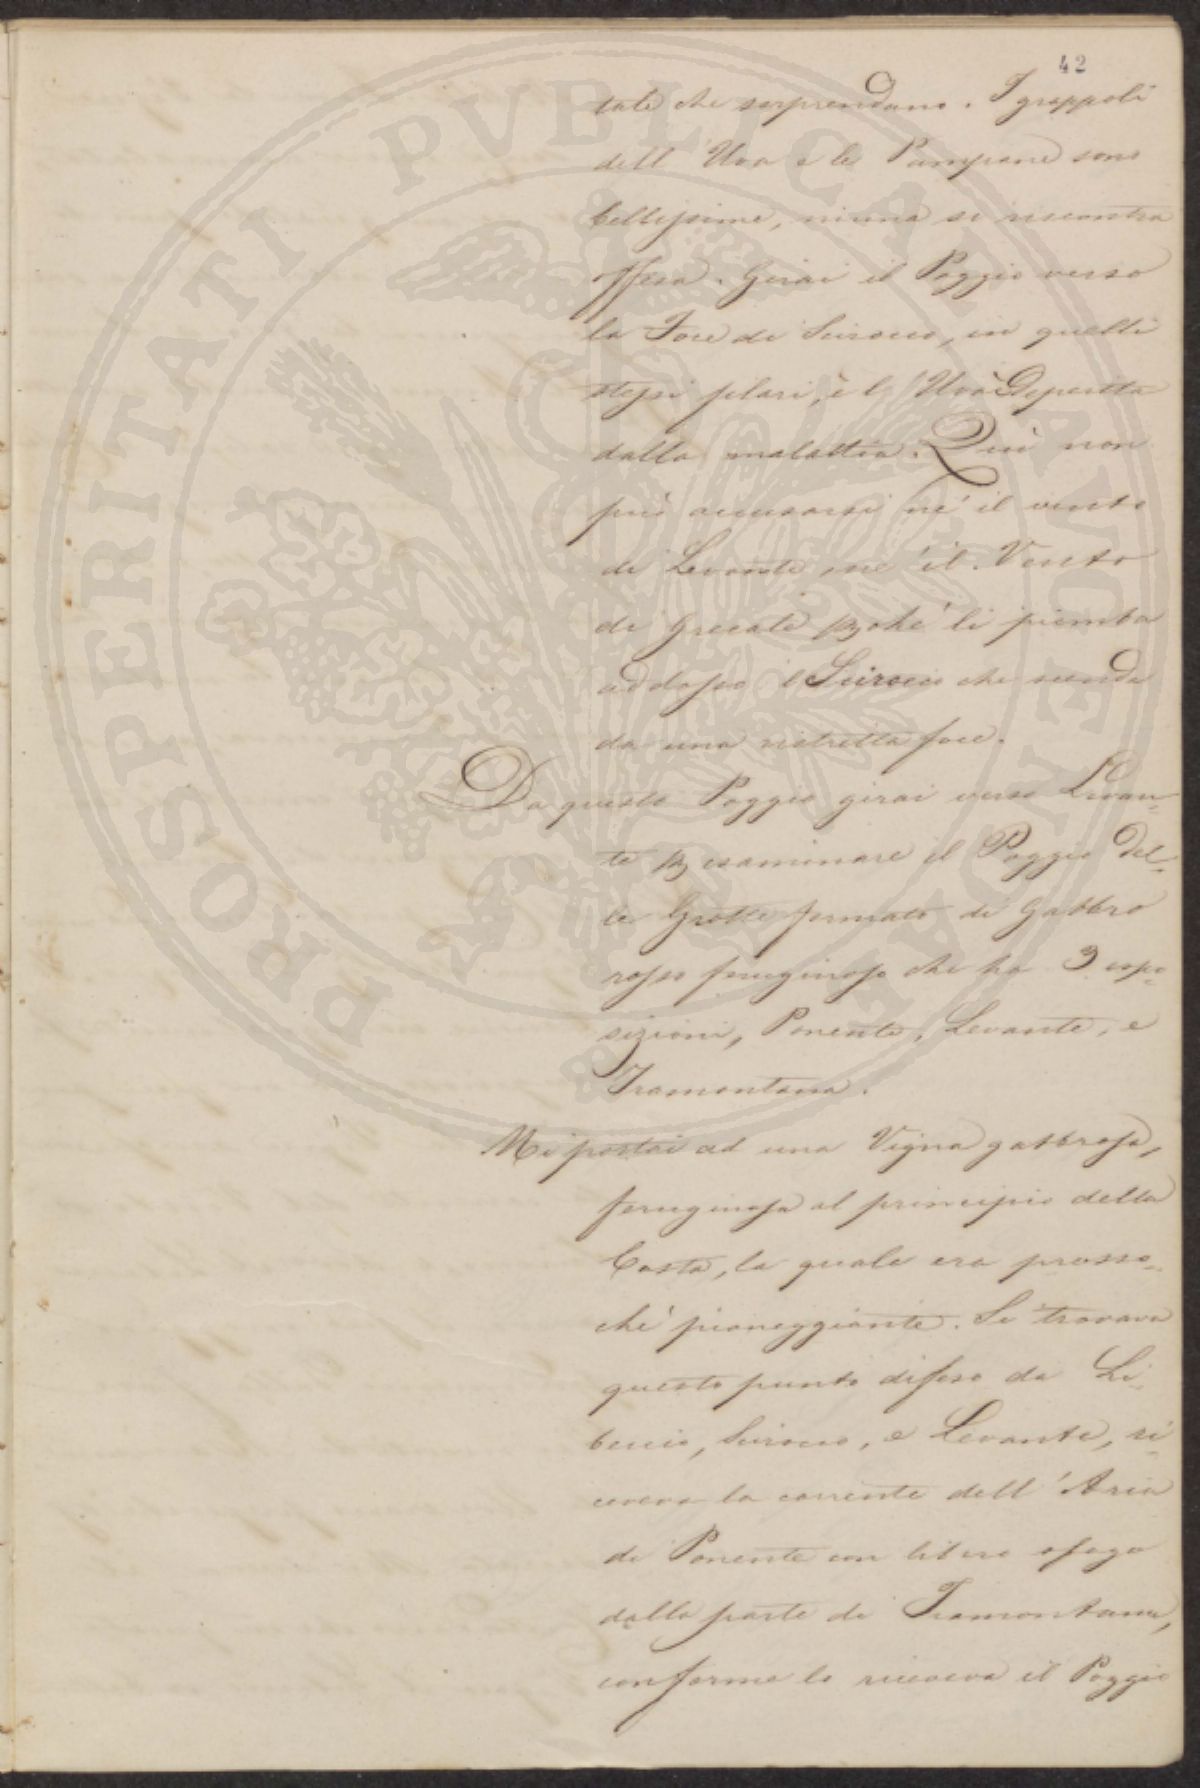 42
tale che sorprendano. I grappoli
dell'Uva e le Pampane sono
bellissime, niuna si riscontra
offesa. Girai il Poggio verso
la Foce di Scirocco, in quelli
stessi filari, è l'Uva Deperita
dalla malattia. Quì non
può accusarsi nè il vento
di Levante, nè il Vento
di Grecale pchè li piomba
addosso il Scirocco che scende
da una ristretta foce.
Da questo Poggio girai verso Levan-
te p esaminare il Poggio Del-
le Grotte formato di Gabbro
rosso feruginoso che ha 3 espo-
sizioni, Ponente, Levante, e
Tramontana.
Mi portai ad una Vigna gabbrosa,
feruginosa al principio della
Costa, la quale era presso-
chè pianeggiante. Si trovava
questo punto difeso da Li-
beccio, Scirocco, e Levante, ri-
ceveva la corrente dell'Aria
di Ponente con libero sfogo
dalla parte di Tramontana,
conforme lo riceveva il Poggio
PROSPERITATI PVBLICAE AVGENDAE